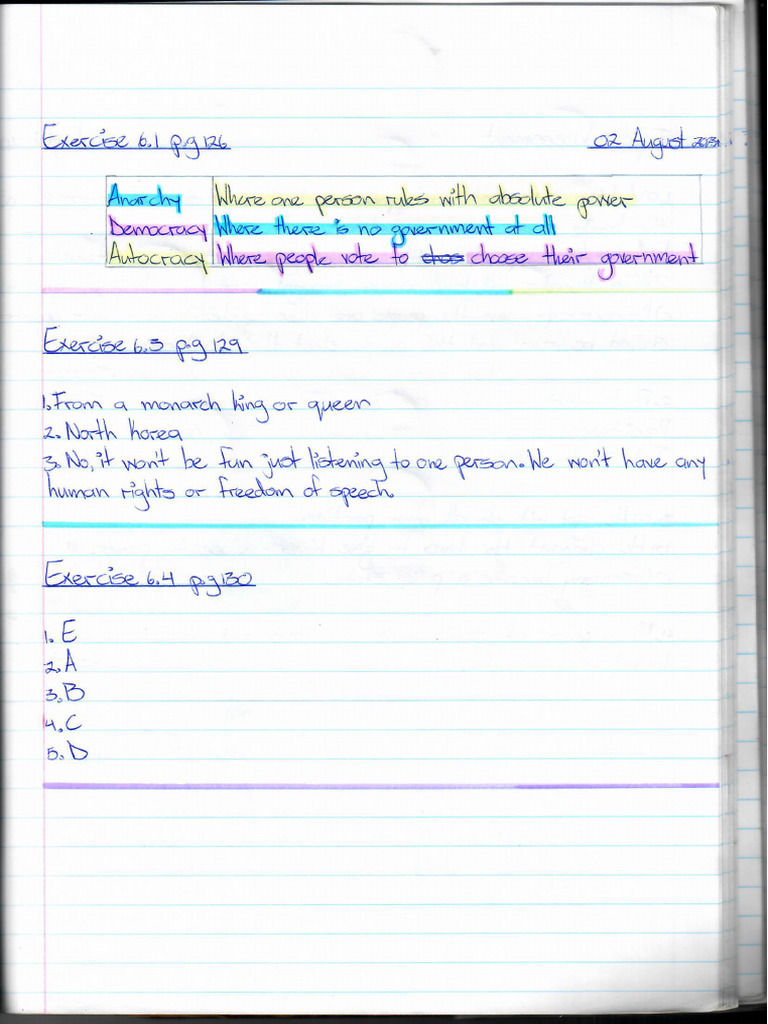 Exercise 6.1 pg 126 02 August 2013
Anarchy Where one person rules with absolute power
Democracy Where there is no government at all
Autocracy Where people vote to choose their government
Exercise 6.3 pg 129
1. From a monarch king or queen
2. North Korea
3. No, it won't be fun just listening to one person. We won't have any
human rights or freedom of speech.
Exercise 6.4 pg 130
1. E
2. A
3. B
4. C
5. D